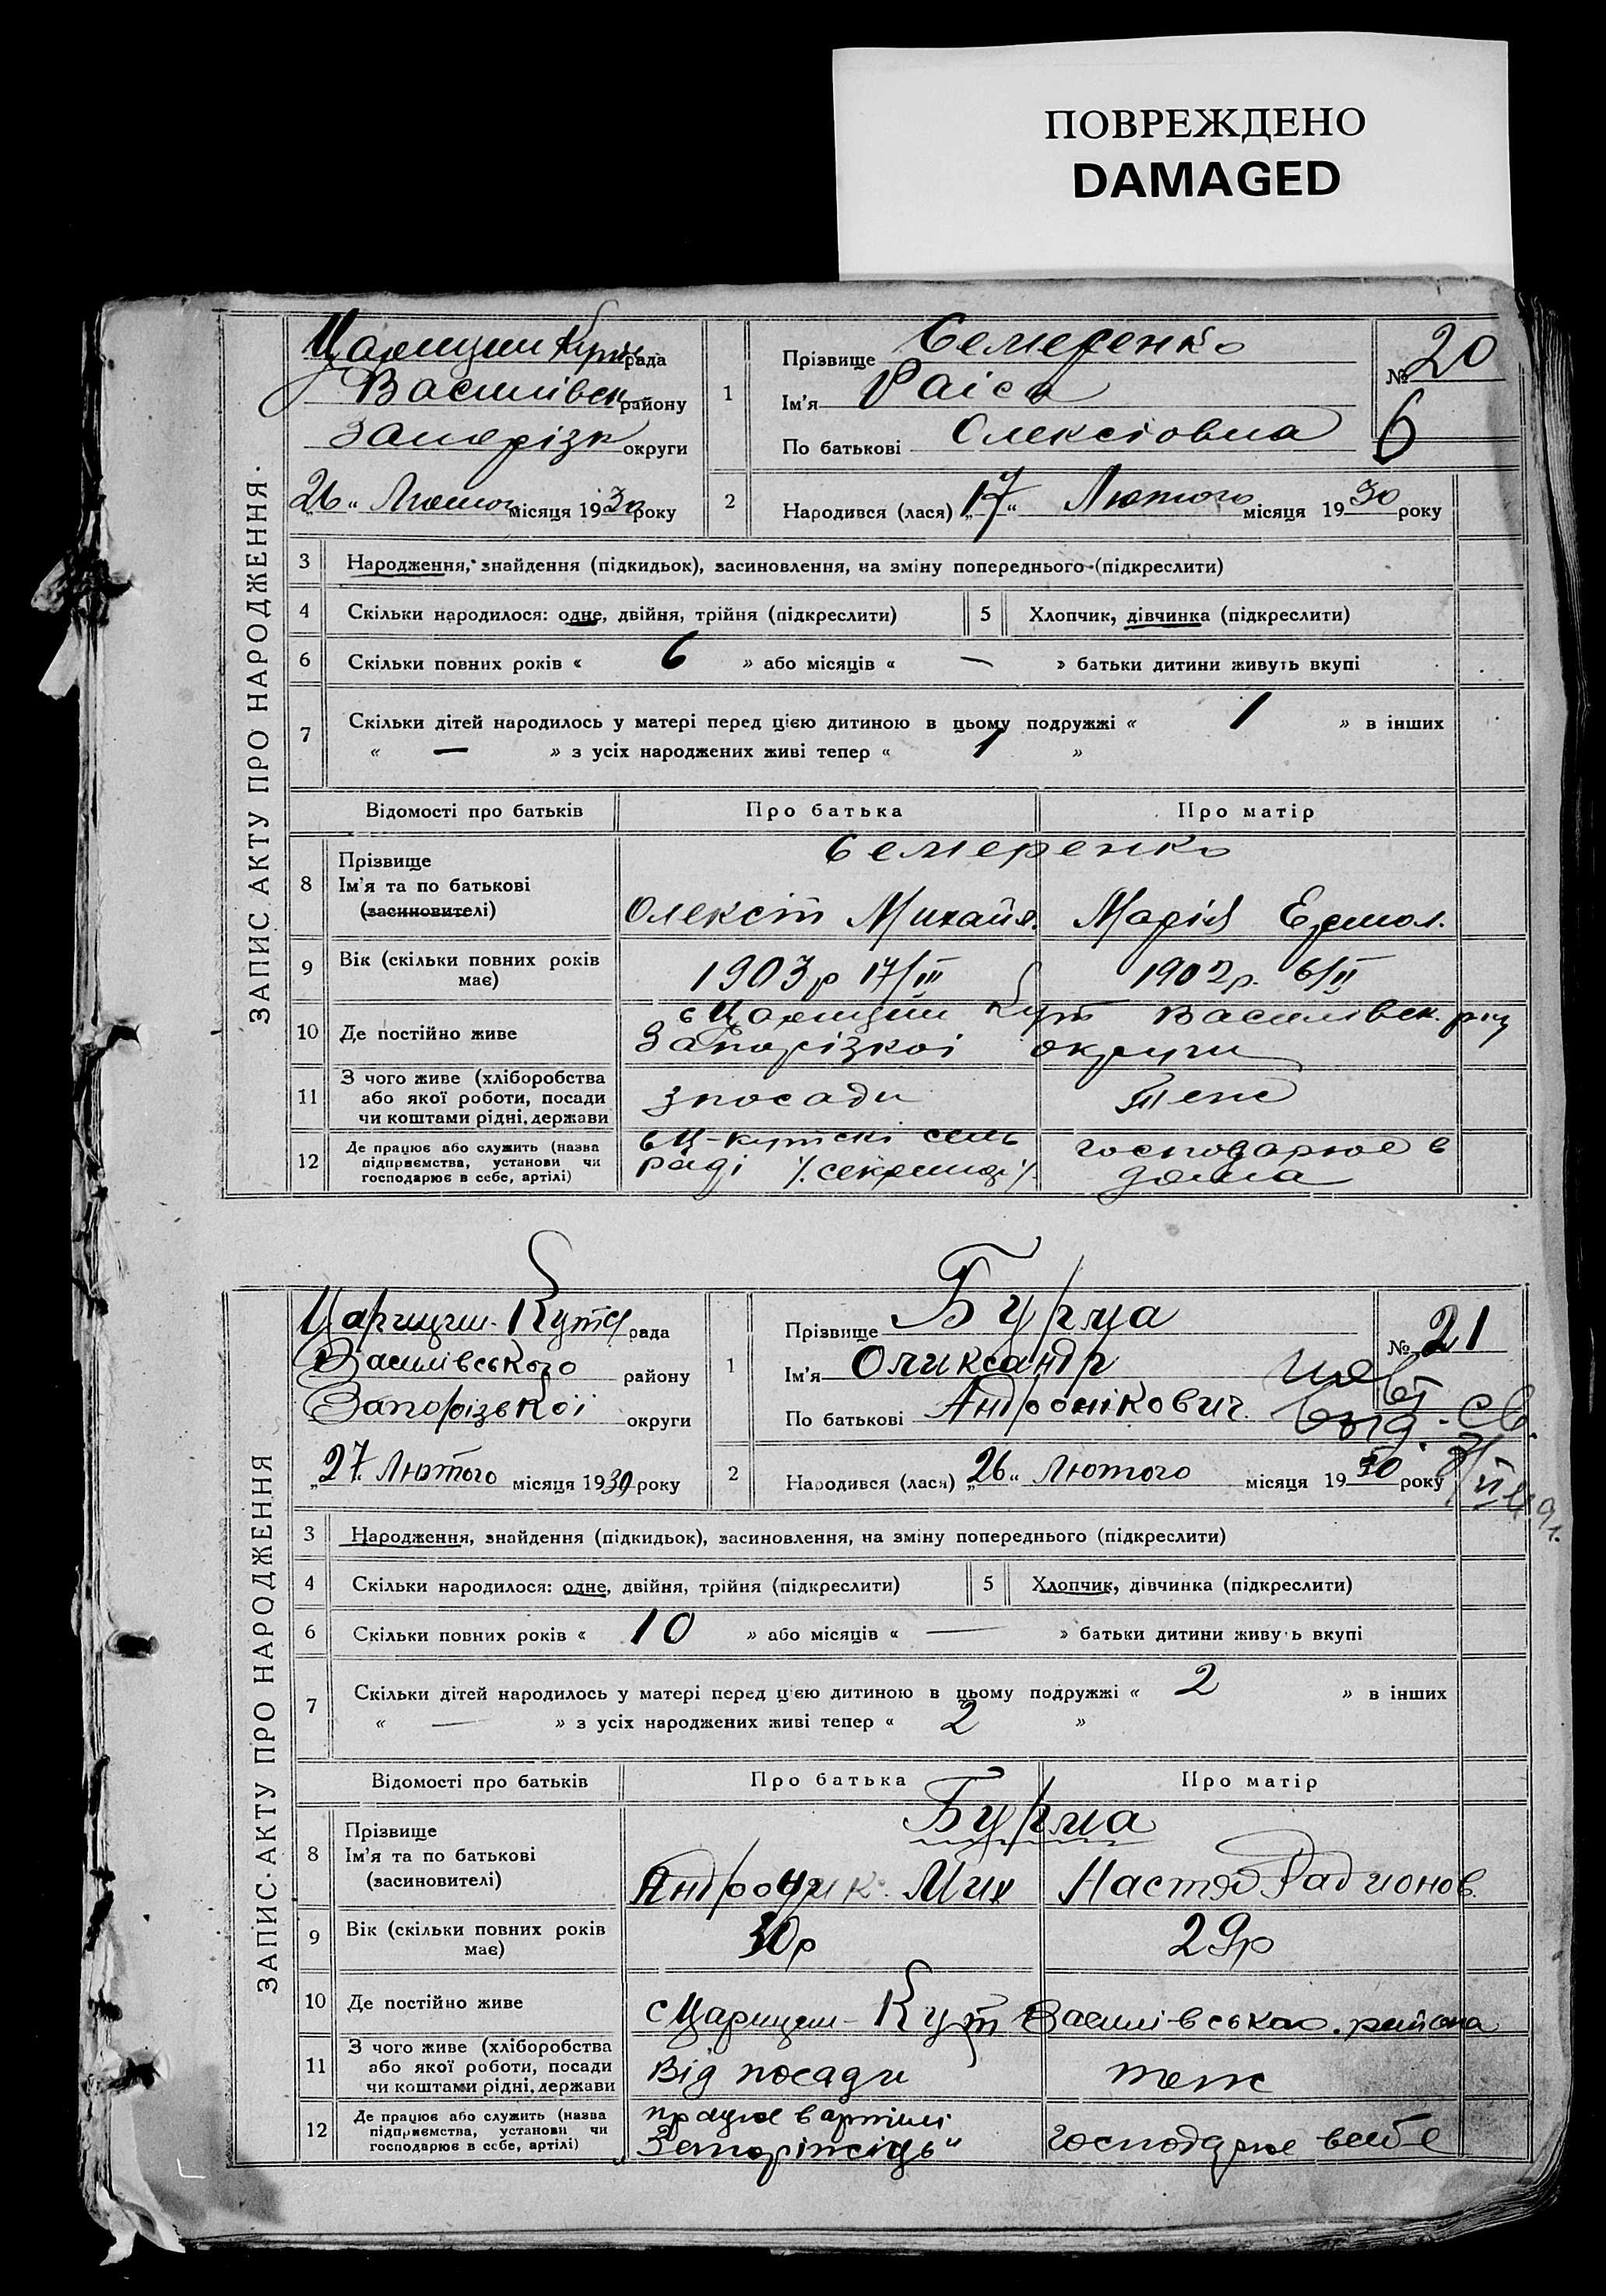 ПОВРЕЖДЕНО
DAMAGED
ЗАПИС АКТУ ПРО НАРОДЖЕННЯ.
Царицин Кутс рада
Василівськ району
Запорізк округи
„26“ Лютого місяця 1930 року
1 Прізвище Семеренко
Ім’я Раіса
По батькові Олексіовна
№ 20
6
2 Народився (лася) „17“ Лютого місяця 1930 року
3 Народження, знайдення (підкидьок), засиновлення, на зміну попереднього (підкреслити)
4 Скільки народилося: одне, двійня, трійня (підкреслити) 5 Хлопчик, дівчинка (підкреслити)
6 Скільки повних років « 6 » або місяців « — » батьки дитини живуть вкупі
7 Скільки дітей народилось у матері перед цією дитиною в цьому подружжі « 1 » в інших
« — » з усіх народжених живі тепер « 1 »
Відомості про батьків Про батька Про матір
8 Прізвище
Ім’я та по батькові
(засиновителі)
Семеренко
Олексій Михайл. Марія Ермол.
9 Вік (скільки повних років має) 1903р 17/III 1902р. 6/II
10 Де постійно живе с Царицин Кут Василівськ. р-ну
Запорізкоі округи
11 З чого живе (хліборобства
або якої роботи, посади
чи коштами рідні, держави
з посади теж
12 Де працює або служить (назва
підприємства, установи чи
господарює в себе, артілі)
в Ц-кутскі сель
раді
господарює в
дома
ЗАПИС АКТУ ПРО НАРОДЖЕННЯ
Царицин-Кутс рада
Василівського району
Запорізької округи
„27“ Лютого місяця 1930 року
1 Прізвище Бурма
Ім’я Оликсандр
По батькові Андронікович
№ 21
2 Народився (лася) „26“ Лютого місяця 1930 року
3 Народження, знайдення (підкидьок), засиновлення, на зміну попереднього (підкреслити)
4 Скільки народилося: одне, двійня, трійня (підкреслити) 5 Хлопчик, дівчинка (підкреслити)
6 Скільки повних років « 10 » або місяців « — » батьки дитини живуть вкупі
7 Скільки дітей народилось у матері перед цією дитиною в цьому подружжі « 2 » в інших
« — » з усіх народжених живі тепер « 2 »
Відомості про батьків Про батька Про матір
8 Прізвище
Ім’я та по батькові
(засиновителі)
Бурма
Андроник. Мих Настя Радионов.
9 Вік (скільки повних років має) 30р 29р
10 Де постійно живе с Царицин-Кут Василівського району
11 З чого живе (хліборобства
або якої роботи, посади
чи коштами рідні, держави
Від посади теж
12 Де працює або служить (назва
підприємства, установи чи
господарює в себе, артілі)
працює в артілі
„Запоріжець“
господарює в себе